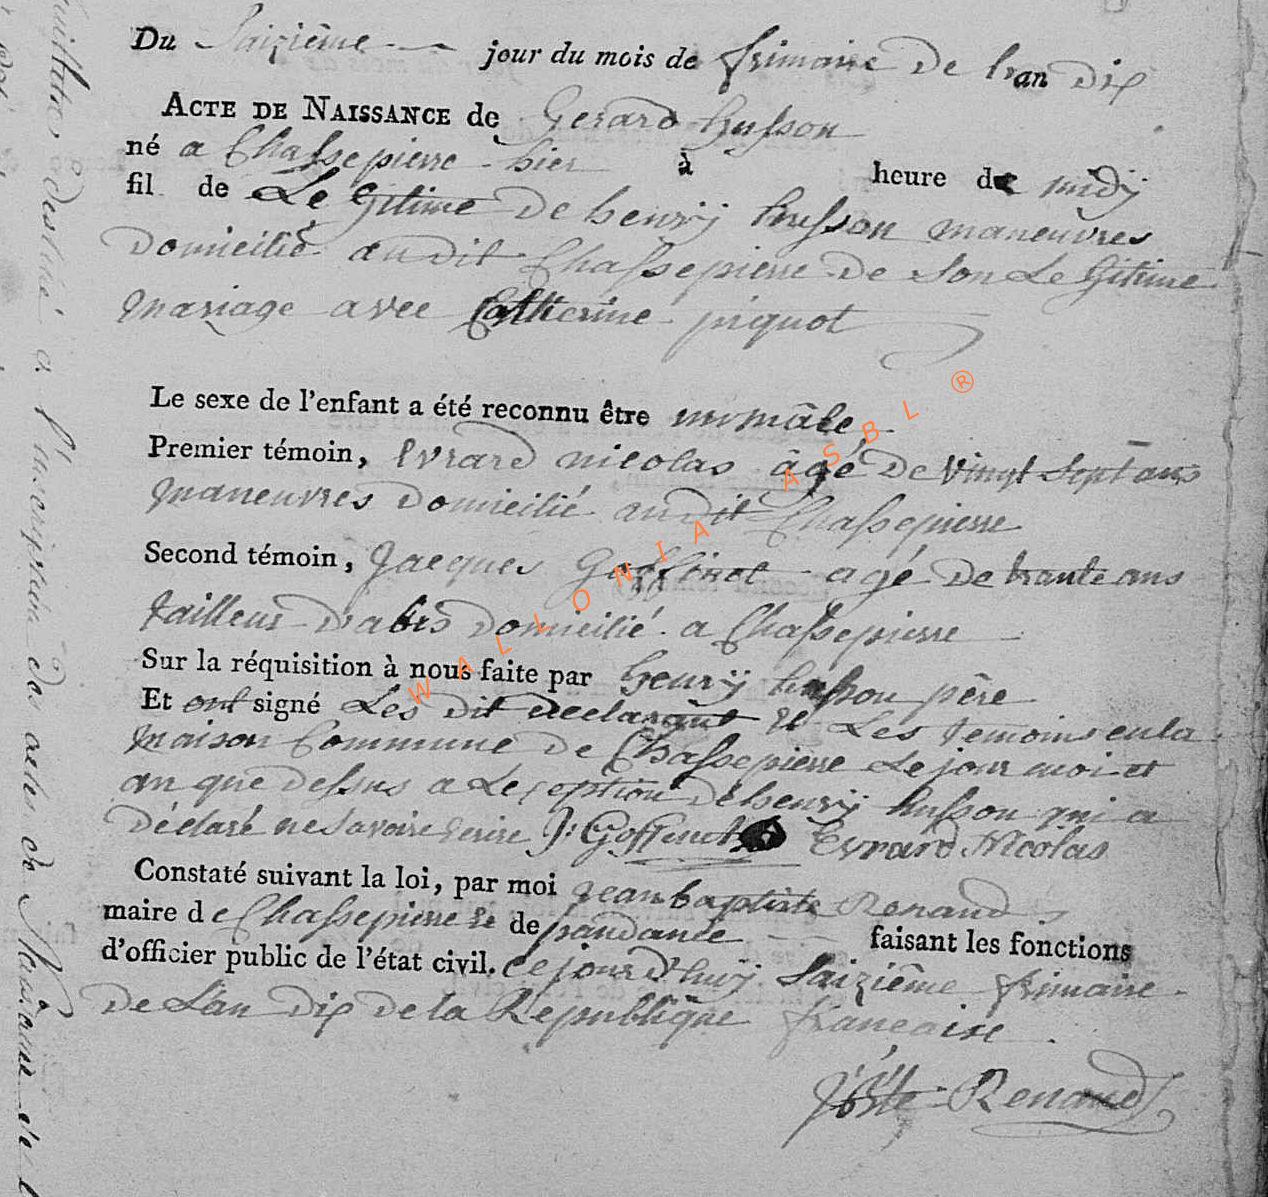 Du Saizième jour du mois de frimaire De l'an Dix
ACTE DE NAISSANCE de Gerard husson
né a Chassepierre hier à heure de midÿ
fil de Le Gitime De henrÿ husson maneuvres
Domicilié audit Chassepierre De Son Le Gitime
mariage avec Catherine piquot
Le sexe de l'enfant a été reconnu être un mâle
Premier témoin, Evrard nicolas âgé De vingt Sept ans
maneuvres Domicilié audit Chassepierre
Second témoin, Jacques Goffinot agé De trante ans
tailleur D'abis Domicilié a Chassepierre
Sur la réquisition à nous faite par henrÿ husson père
Et ont signé Les Dit Declarant et Les temoins en la
maison Commune De Chassepierre Le jour moi et
an que Dessus a Leception De henrÿ husson qui a
Déclaré ne Savoire Ecrire J: Goffinot Evrard Nicolas
Constaté suivant la loi, par moi jean baptiste Renaud
maire de Chassepierre et de pandance faisant les fonctions
d'officier public de l'état civil. Ce jour D'huÿ Saizième frimaire
De L'an Dix De la Republique françaixe
JBste Renaud
WALLONIA ASBL ®